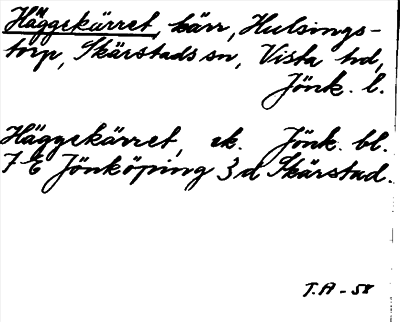 Häggekärret, kärr, Hulsings-
torp, Skärstads sn, Vista hd,
Jönk. l.
Häggekärret, ek. Jönk. bl.
7 E Jönköping 3 d Skärstad.
T.A - 58